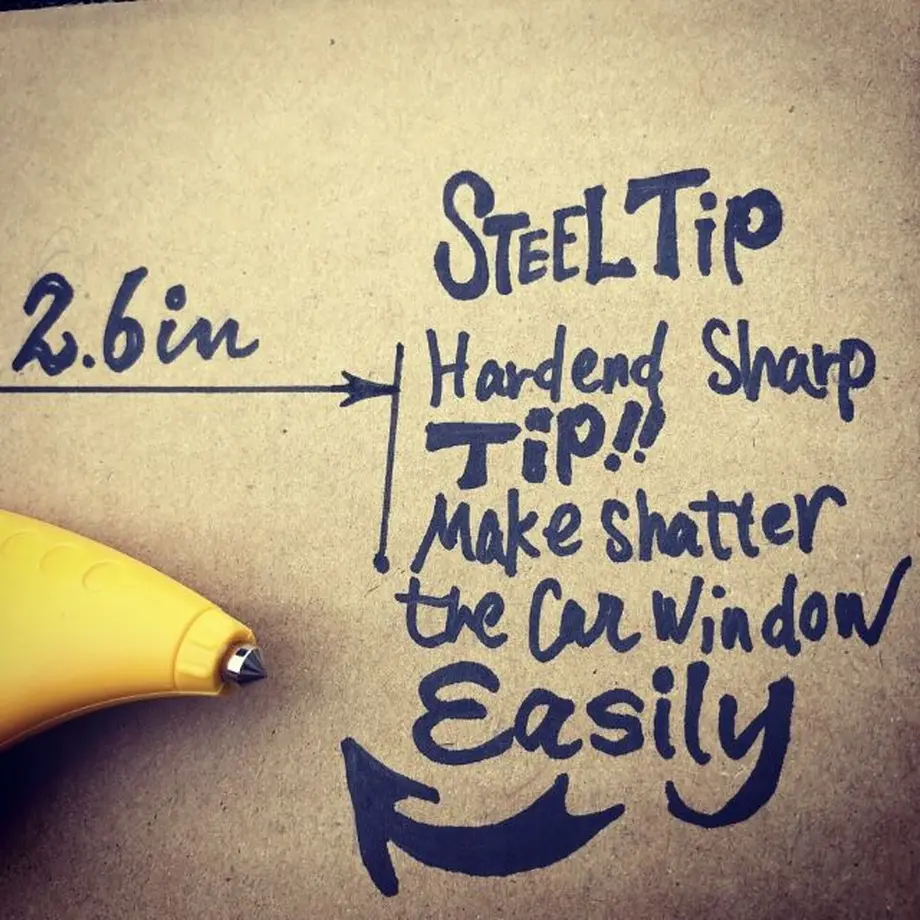 STEEL Tip
2.6in
Hardend Sharp
Tip!!
Make shatter
the Car Window
Easily